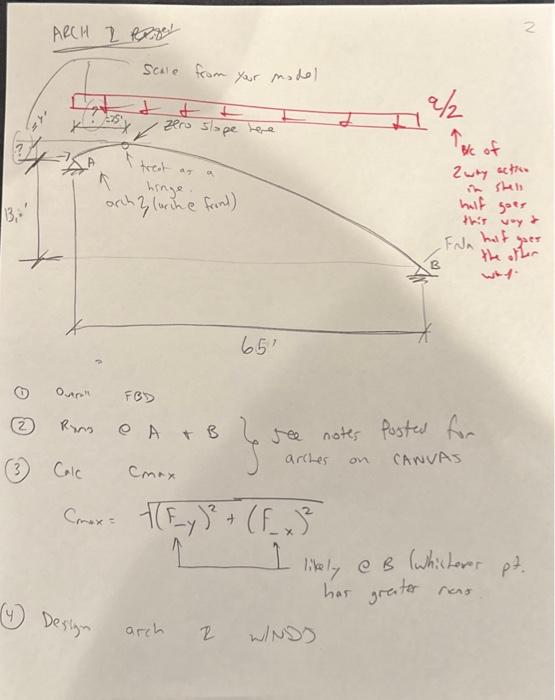 ARCH 2
2
Scale from your model
q/2
?
≈25'
zero slope here
4'
?
A
treat as a
hinge.
arch 2
B/c of
2 way action
in shell
half goes
this way &
half goes
the other
way.
13.
B
65'
① Overall FBD
② Rxns @ A + B
see notes posted for
arches on CANVAS
③ Calc Cmax
Cmax = √(F_y)² + (F_x)²
likely @ B (whichever pt.
has greater rxns.
④ Design arch 2 w/NDS